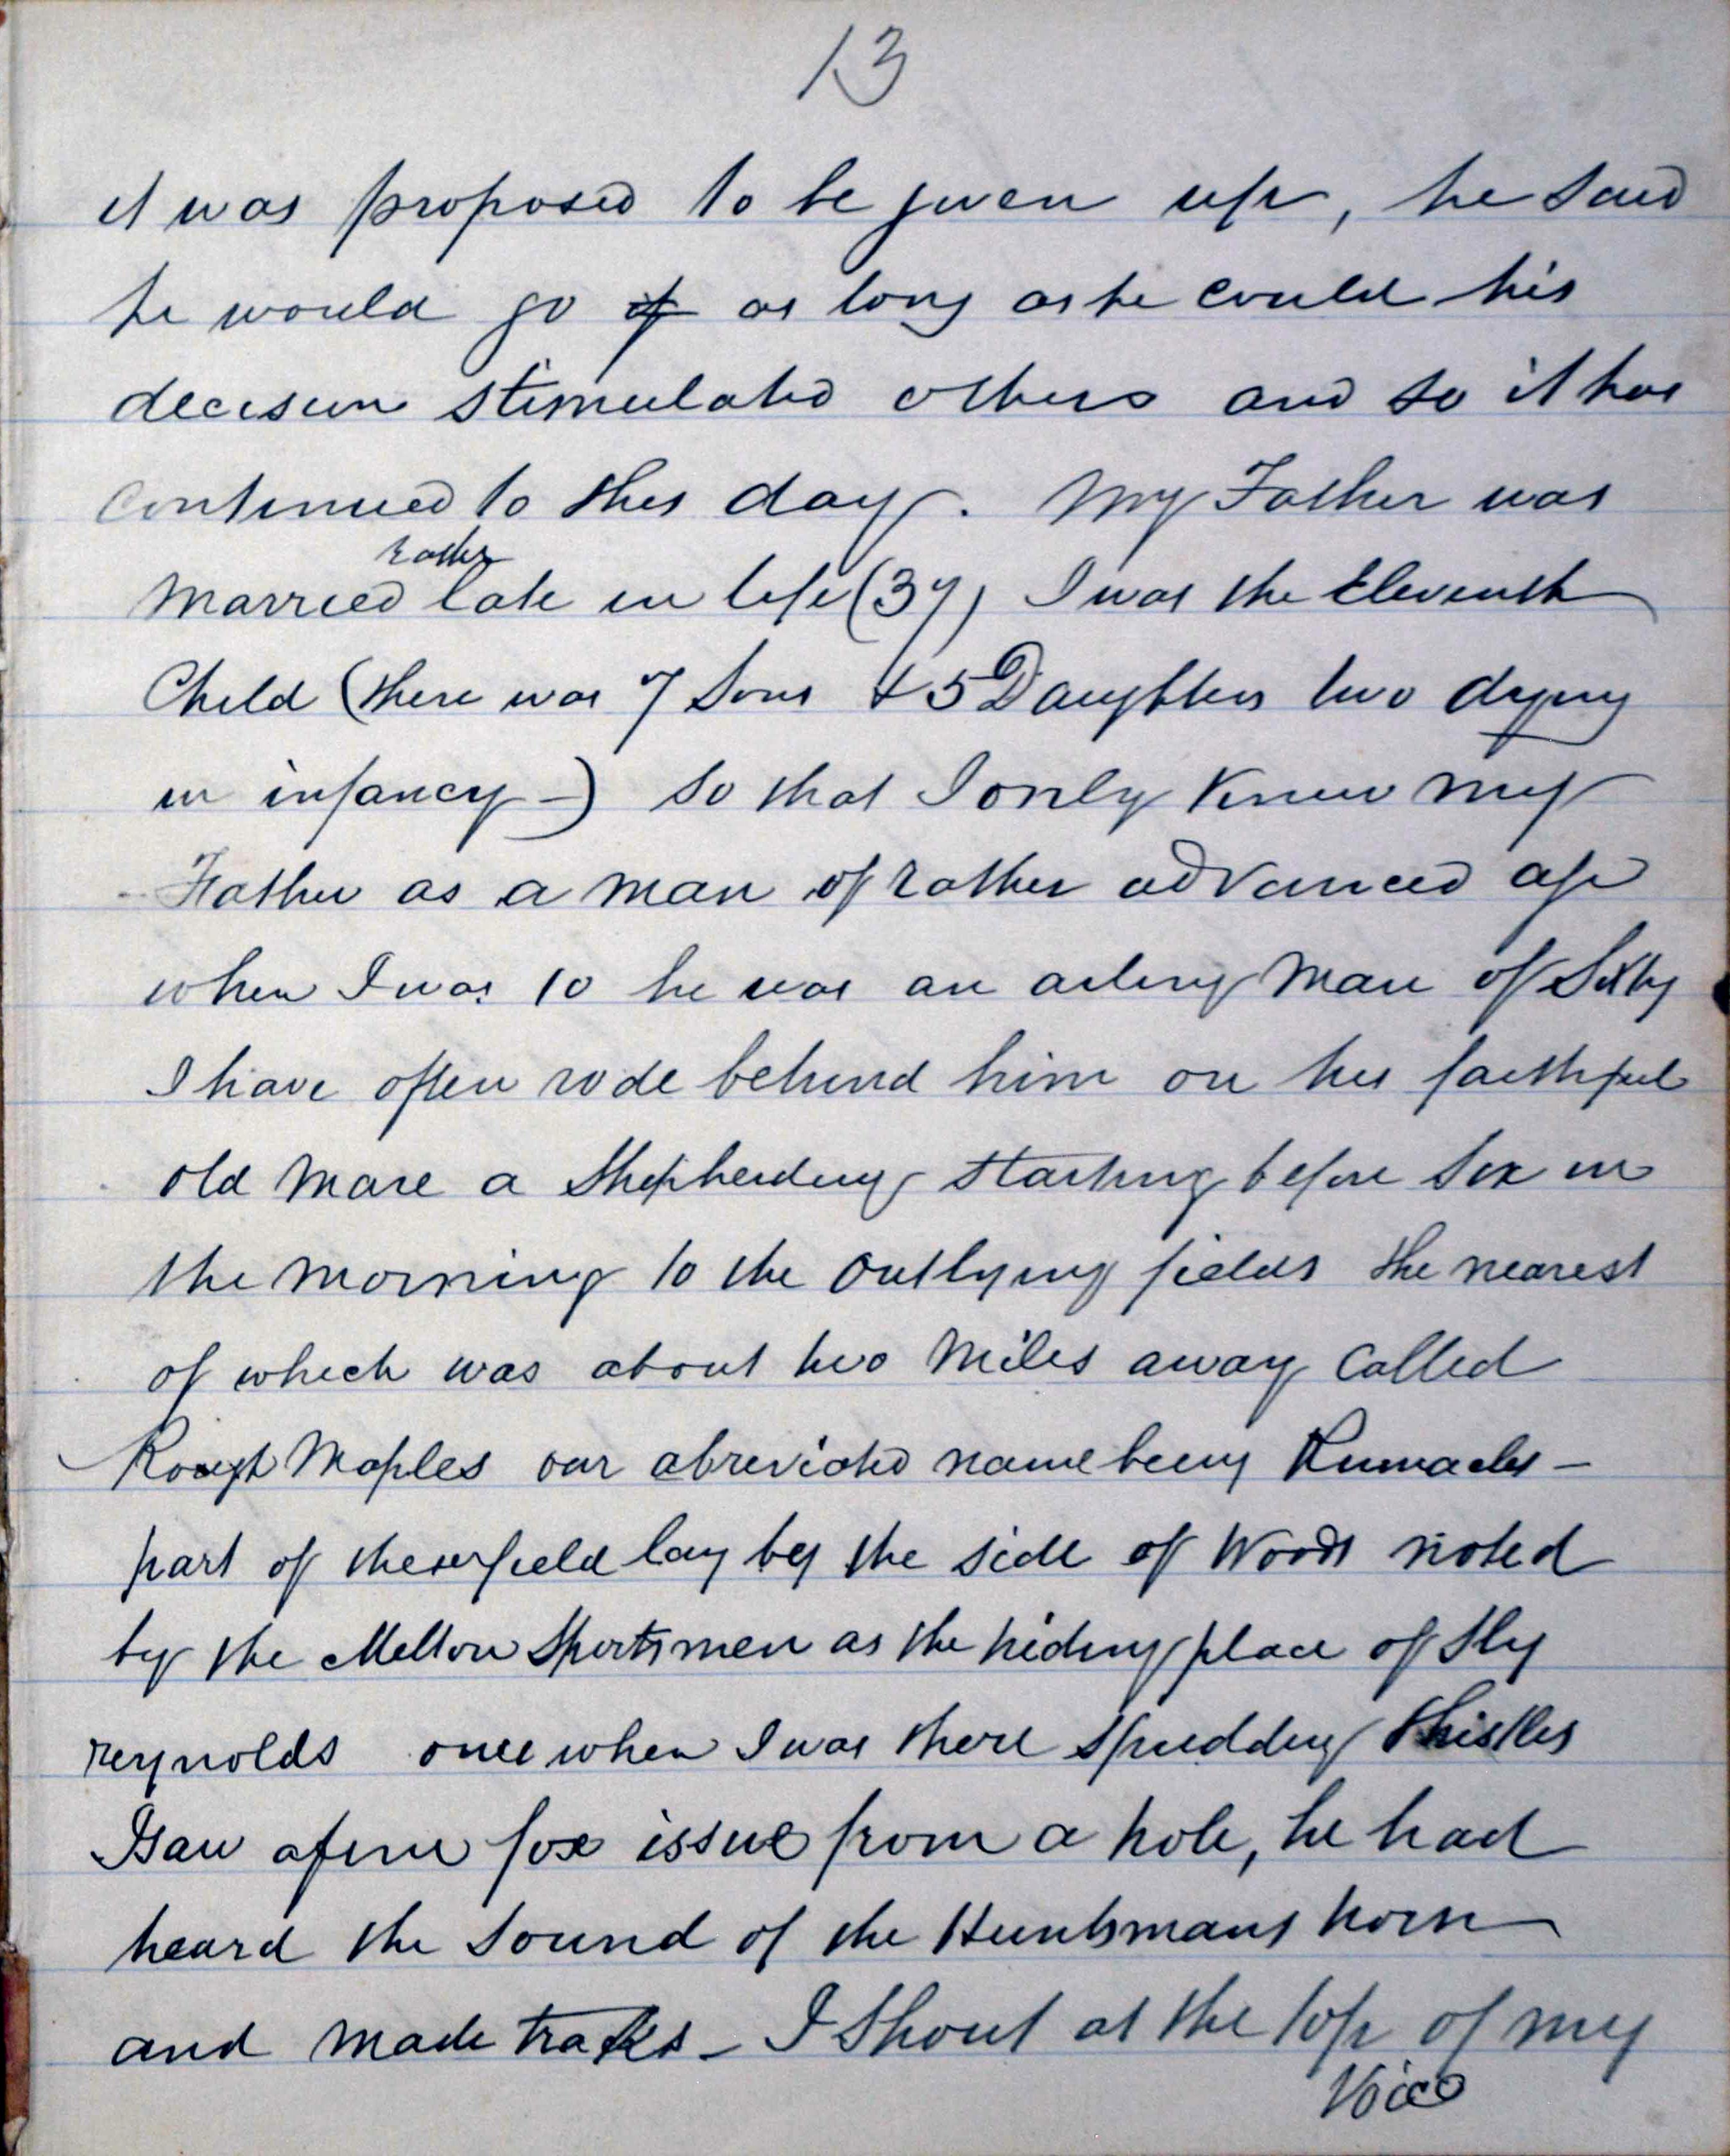 13
it was proposed to be given up, he said
he would go as long as he could his
decision stimulated others and so it has
continued to this day. My Father was
rather
married late in life (37) I was the Eleventh
Child (there was 7 Sons & 5 Daughters two dying
in infancy -) so that I only knew my
Father as a man of rather advanced age
when I was 10 he was an ailing man of Sixty
I have often rode behind him on his faithful
old mare a Shepherding starting before six in
the morning to the outlying fields the nearest
of which was about two miles away called
Rough Maples our abreviated name being
part of field lay by the side of Woods noted
by the Melton Sportsmen as the hiding place of sly
reynolds once when I was there spudding thistles
I saw a fine fox issue from a hole, he had
heard the sound of the Huntsmans horn
and made tracks - I Shout at the top of my
Voice